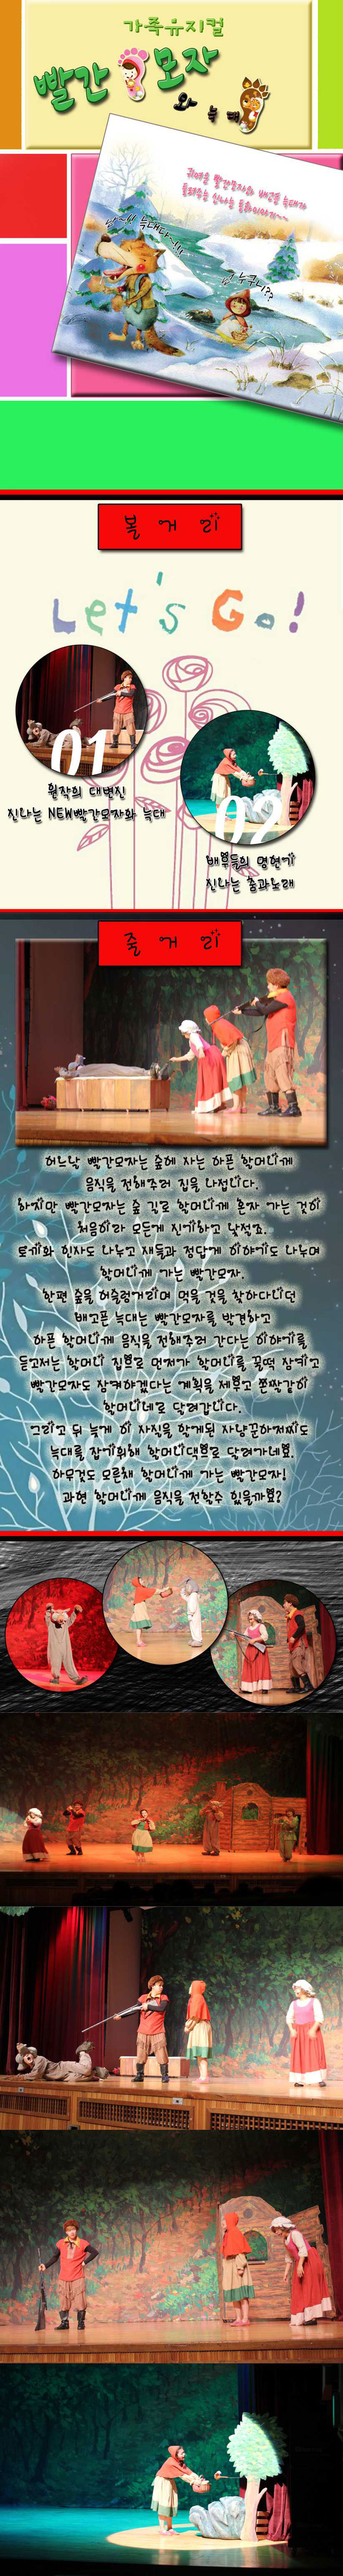 가족뮤지컬
빨간모자
와 늑대
귀여운 빨간모자와 배고픈 늑대가
들려주는 신나는 동화이야기~~
난~~ 늑대다~!!!
넌 누구니??
볼거리
Let's Go!
01
원작의 대변신
신나는 NEW빨간모자와 늑대
02
배우들의 명연기
신나는 춤과노래
줄거리
어느날 빨간모자는 숲에 사는 아픈 할머니께
음식을 전해조러 집을 나섭니다.
하지만 빨간모자는 숲 길로 혼자 가는 것이
처음이라 모든게 신기하고 낯설죠.
토끼와 인사도 나누고 새들과 정답게 이야기도 나누며
할머니께 가는 빨간모자.
한편 숲을 어슬렁거리며 먹을 것을 찾아다니던
배고픈 늑대는 빨간모자를 발견하고
아픈 할머니께 음식을 전해조러 간다는 이야기를
듣고서는 할머니 집으로 먼저가 할머니를 꿀떡 삼키고
빨간모자도 삼켜야겠다는 계획을 세우고 쏜살같이
할머니네로 달려갑니다.
그리고 뒤 늦게 이 사실을 알게된 사냥꾼아저씨도
늑대를 잡기위해 할머니댁으로 달려가네요.
아무것도 모른채 할머니께 가는 빨간모자!
과연 할머니께 음식을 전할수 있을까요?